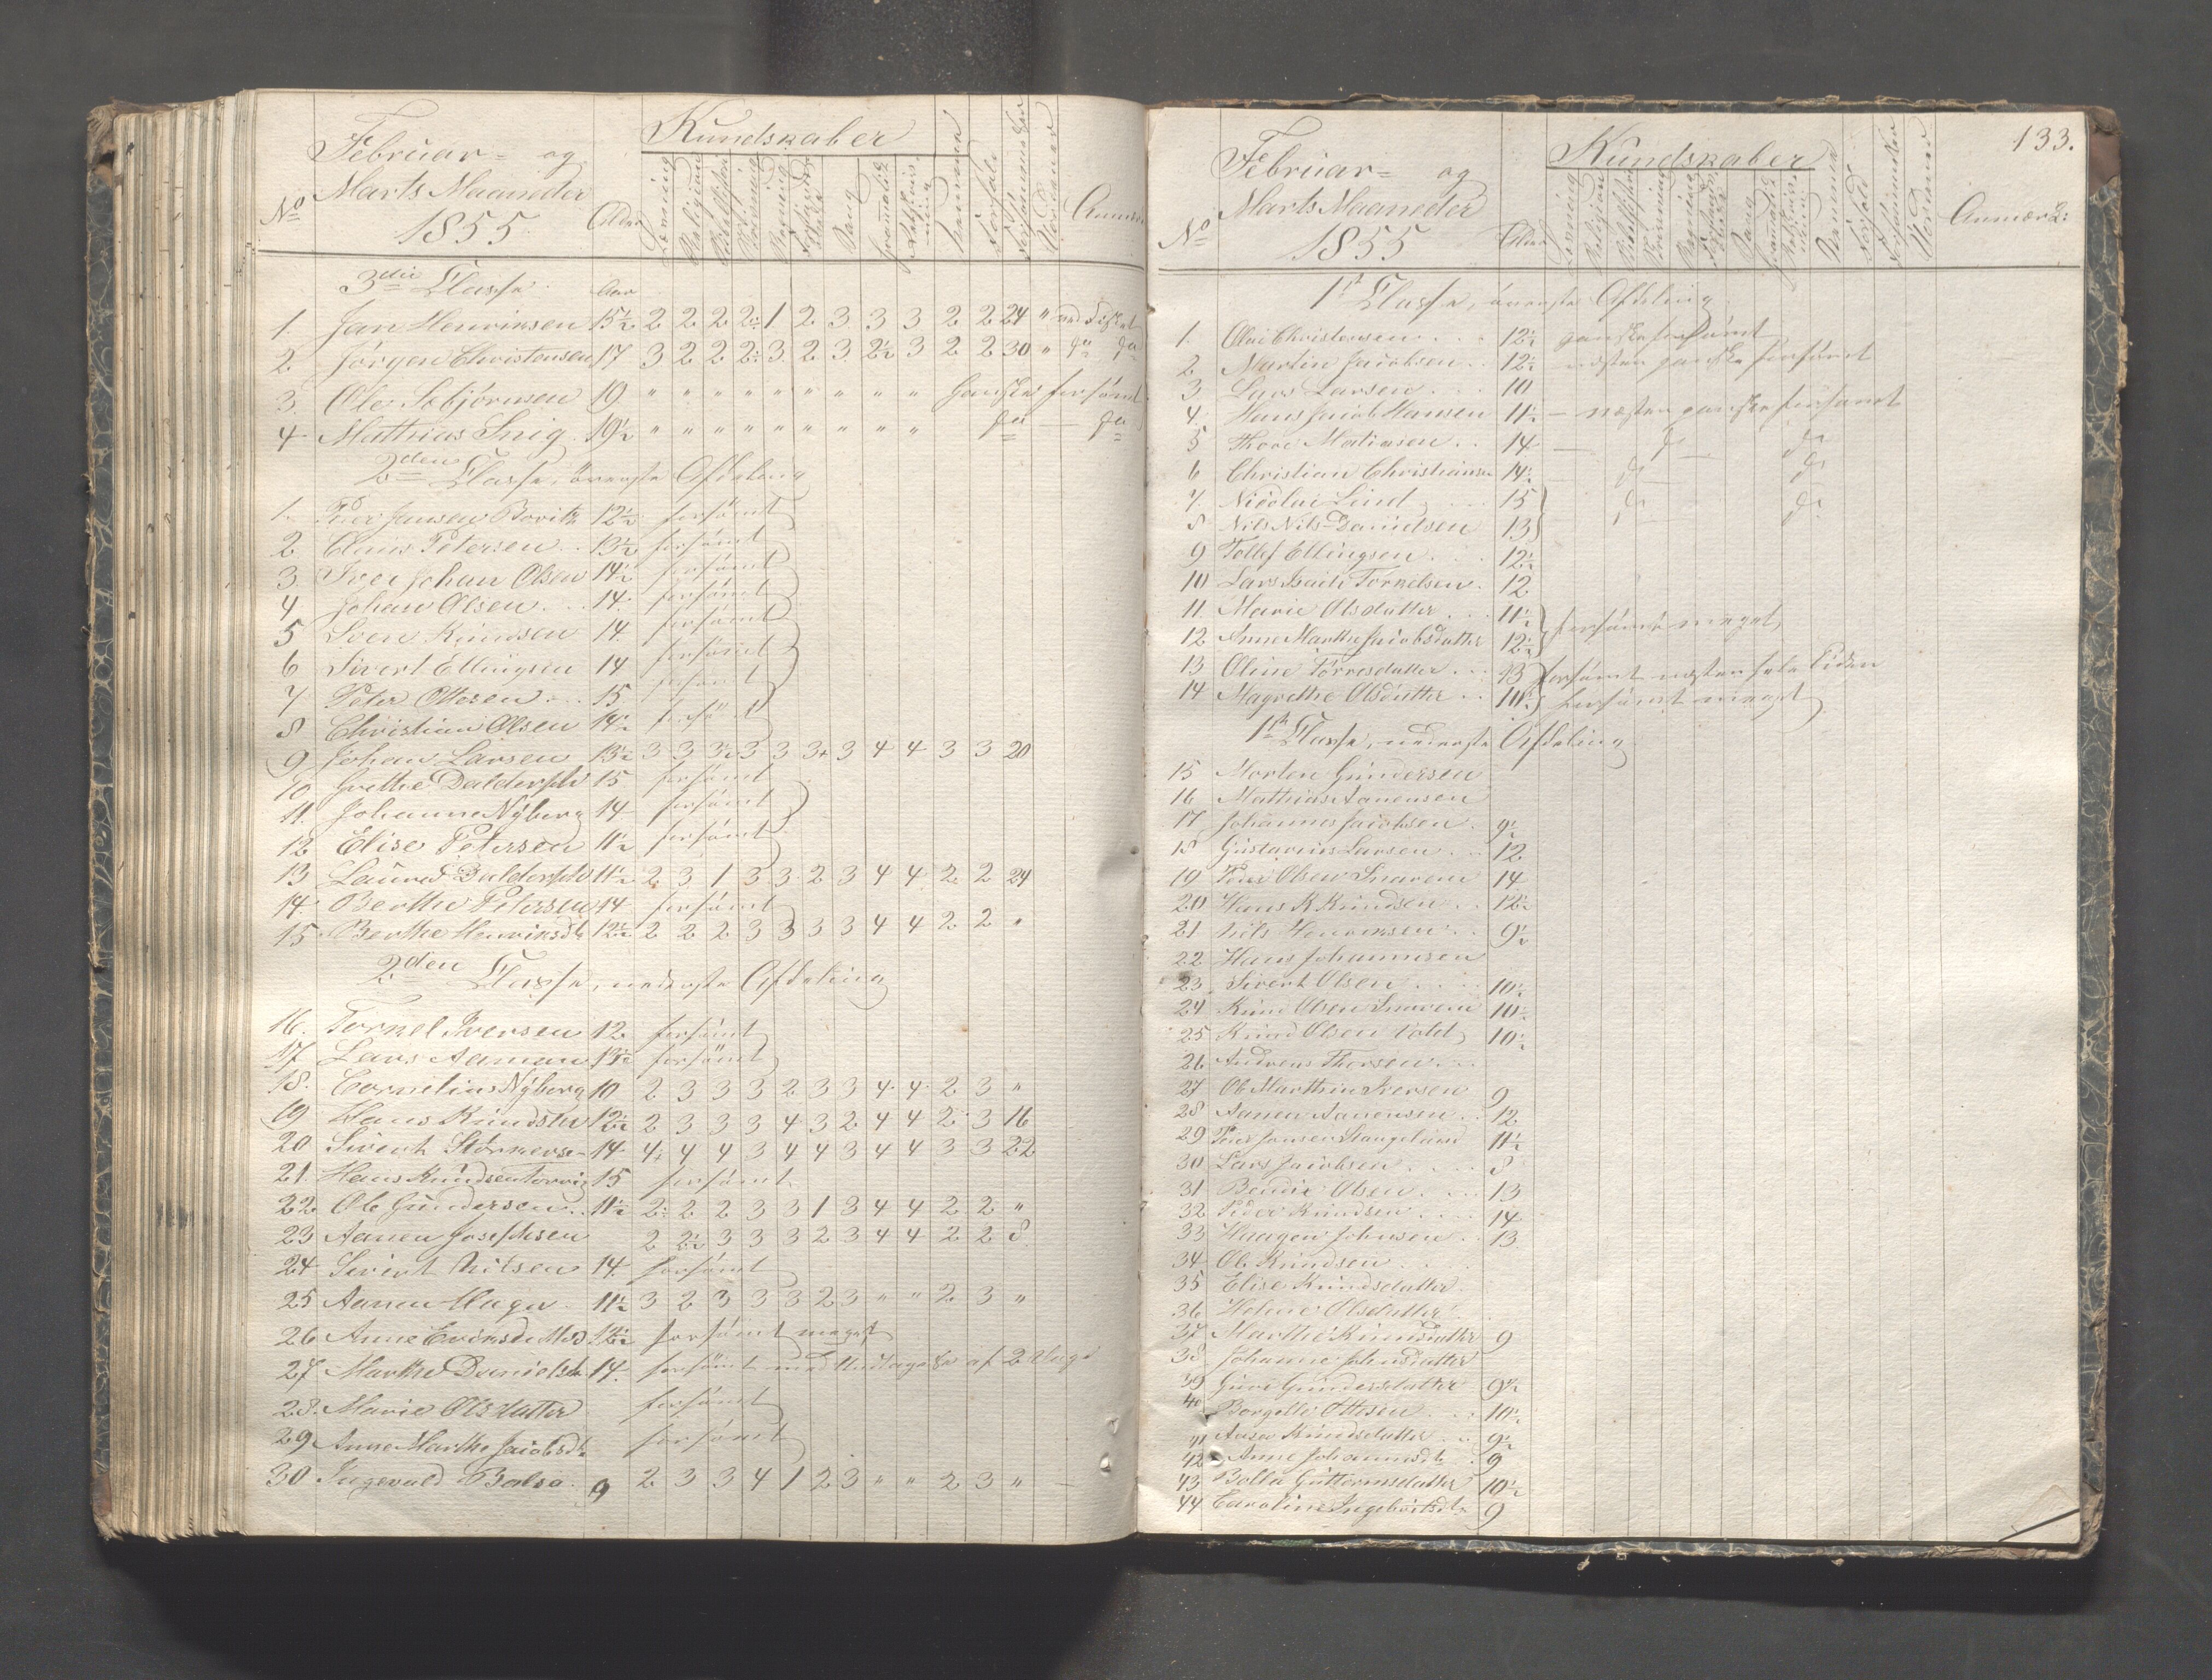 Februar- og
Marts Maaneder
1855
No
Alder
Kundskaber
Læsning
Religion
Sang
Grammatik
Nemme
Forhold
3die Classe
Aar
1. Jan Henriksen 15½ 2 2 2 2 1 2 3 3 3 2 2 24 "
2 Jörgen Christensen 17 3 2 2 2 3 2 3 2½ 3 2 2 30 " do do
3. Ole Asbjörnsen 19 " " " " " " " " " Ganske forsömt
4 Mathias Snig 19½ " " " " " " " " " do - do
2den Classe, överste Afdeling
1. Peder Jansen 12½ forsömt
2 Claus Petersen 13½ forsömt
3 Iver Johan Olsen 14½ forsömt
4 Johan Olsen 14 forsömt
5 Sven Knudsen 14 forsömt
6 Sivert Ellingsen 14 forsömt
7 Peter Ottesen 15 forsömt
8 Christian Olsen 14½ forsömt
9 Johan Larsen 13½ 3 3 3½ 3 3 3+ 3 4 4 3 3 20
10 Grethe 15 forsömt
11. Johanne Nÿberg 14 forsömt
12 Elise Petersen 11½ forsömt
13 11½ 2 3 1 3 3 2 3 4 4 2 2 24
14. Berthe Petersen 14 forsömt
15 Berthe Henriksdtr 12½ 2 2 2 3 3 3 3 4 4 2 2 "
2den Classe, nederste Afdeling
16. Torkel Iversen 12 forsömt
17 Lars Aaman 13½ forsömt
18. Cornelius Nÿberg 10 2 3 3 3 2 3 3 4 4 2 3 "
19 Hans Knudsen 12½ 2 3 3 3 4 3 2 4 4 2 3 16
20 Sivert Störkersen 14 4 4 4 3 4 4 3 4 4 3 3 22
21. Hans Knudsen 15 forsömt
22 Ole Gundersen 11½ 2 2 2 3 3 1 3 4 4 2 2 "
23 Aanen Josephsen 2 2½ 3 3 3 2 3 4 4 2 2 8
24 Sivert Nilsen 14 forsömt
25 Aanen Hagen 11½ 3 2 3 3 3 2 3 " " 2 3 "
26 Anne 12½ forsömt meget
27 Marthe Danielsd. 14. forsömt med Undtagelse af 2
28. Marie Olsdatter forsömt
29 Anne Marthe Jacobsd. forsömt
30 Ingevald 9 2 3 3 4 1 2 3 " " 2 3 " -
133.
Februar- og
Marts Maaneder
1855
No
Alder
Kundskaber
Læsning
Religion
Sang
Nemme
Forhold
Anmærk:
1ste Classe, överste Afdeling
1. Olai Christensen 12½ ganske forsömt
2 Martin Jacobsen 12½ næsten ganske forsömt
3 Lars Larsen 10
4 Hans Jacob Hansen 11½ - næsten ganske forsömt
5 Thore Matiasen 14 - do - do
6 Christian Christiansen 14½ - do - do
7 Nicolai Lind 15 do do
8 Nils Nils-Danielsen 13
9 Tollef Ellingsen 12½
10 Lars Torkelsen 12
11. Marie Olsdatter 11½ forsömt meget
12 Anne Marthe Jacobsdatter 12½
13 Oline Törresdatter 13 forsömt næsten hele Tiden
14 Magrethe Olsdatter 10½ forsömt meget
1ste Classe, nederste Afdeling
15 Morten Gundersen
16 Mathias Aanensen
17 Johannes Jacobsen 9½
18 Gustavius Larsen 12
19 Peder Olsen Snarem 14
20 Hans K Knudsen 12½
21 Nils Henriksen 9½
22 Hans Johannesen
23 Sivert Olsen 10½
24 Knud Olsen Snarem 10½
25 Knud Olsen 10½
26 Andreas Thorsen
27 Ole Marthin Iversen 9
28 Aanen Aanensen 12
29 Peder Jansen Stangeland 11½
30 Lars Jacobsen 8
31 Olsen 13
32 Peder Knudsen 14
33 Haagen Johnsen 13
34 Ole Knudsen
35 Elise Knudsdatter
36 Helene Olsdatter
37 Marthe Knudsdatter 9
38 Johanne Johnsdatter
39 Guri Gundersdatter 9½
40 Borgille Ottesen 10½
41 Aasa Knudsdatter 9½
42 Anne Johannesdtr 9
43 Bolla Guttormsdatter 10½
44 Caroline Ingebretsdtr 9